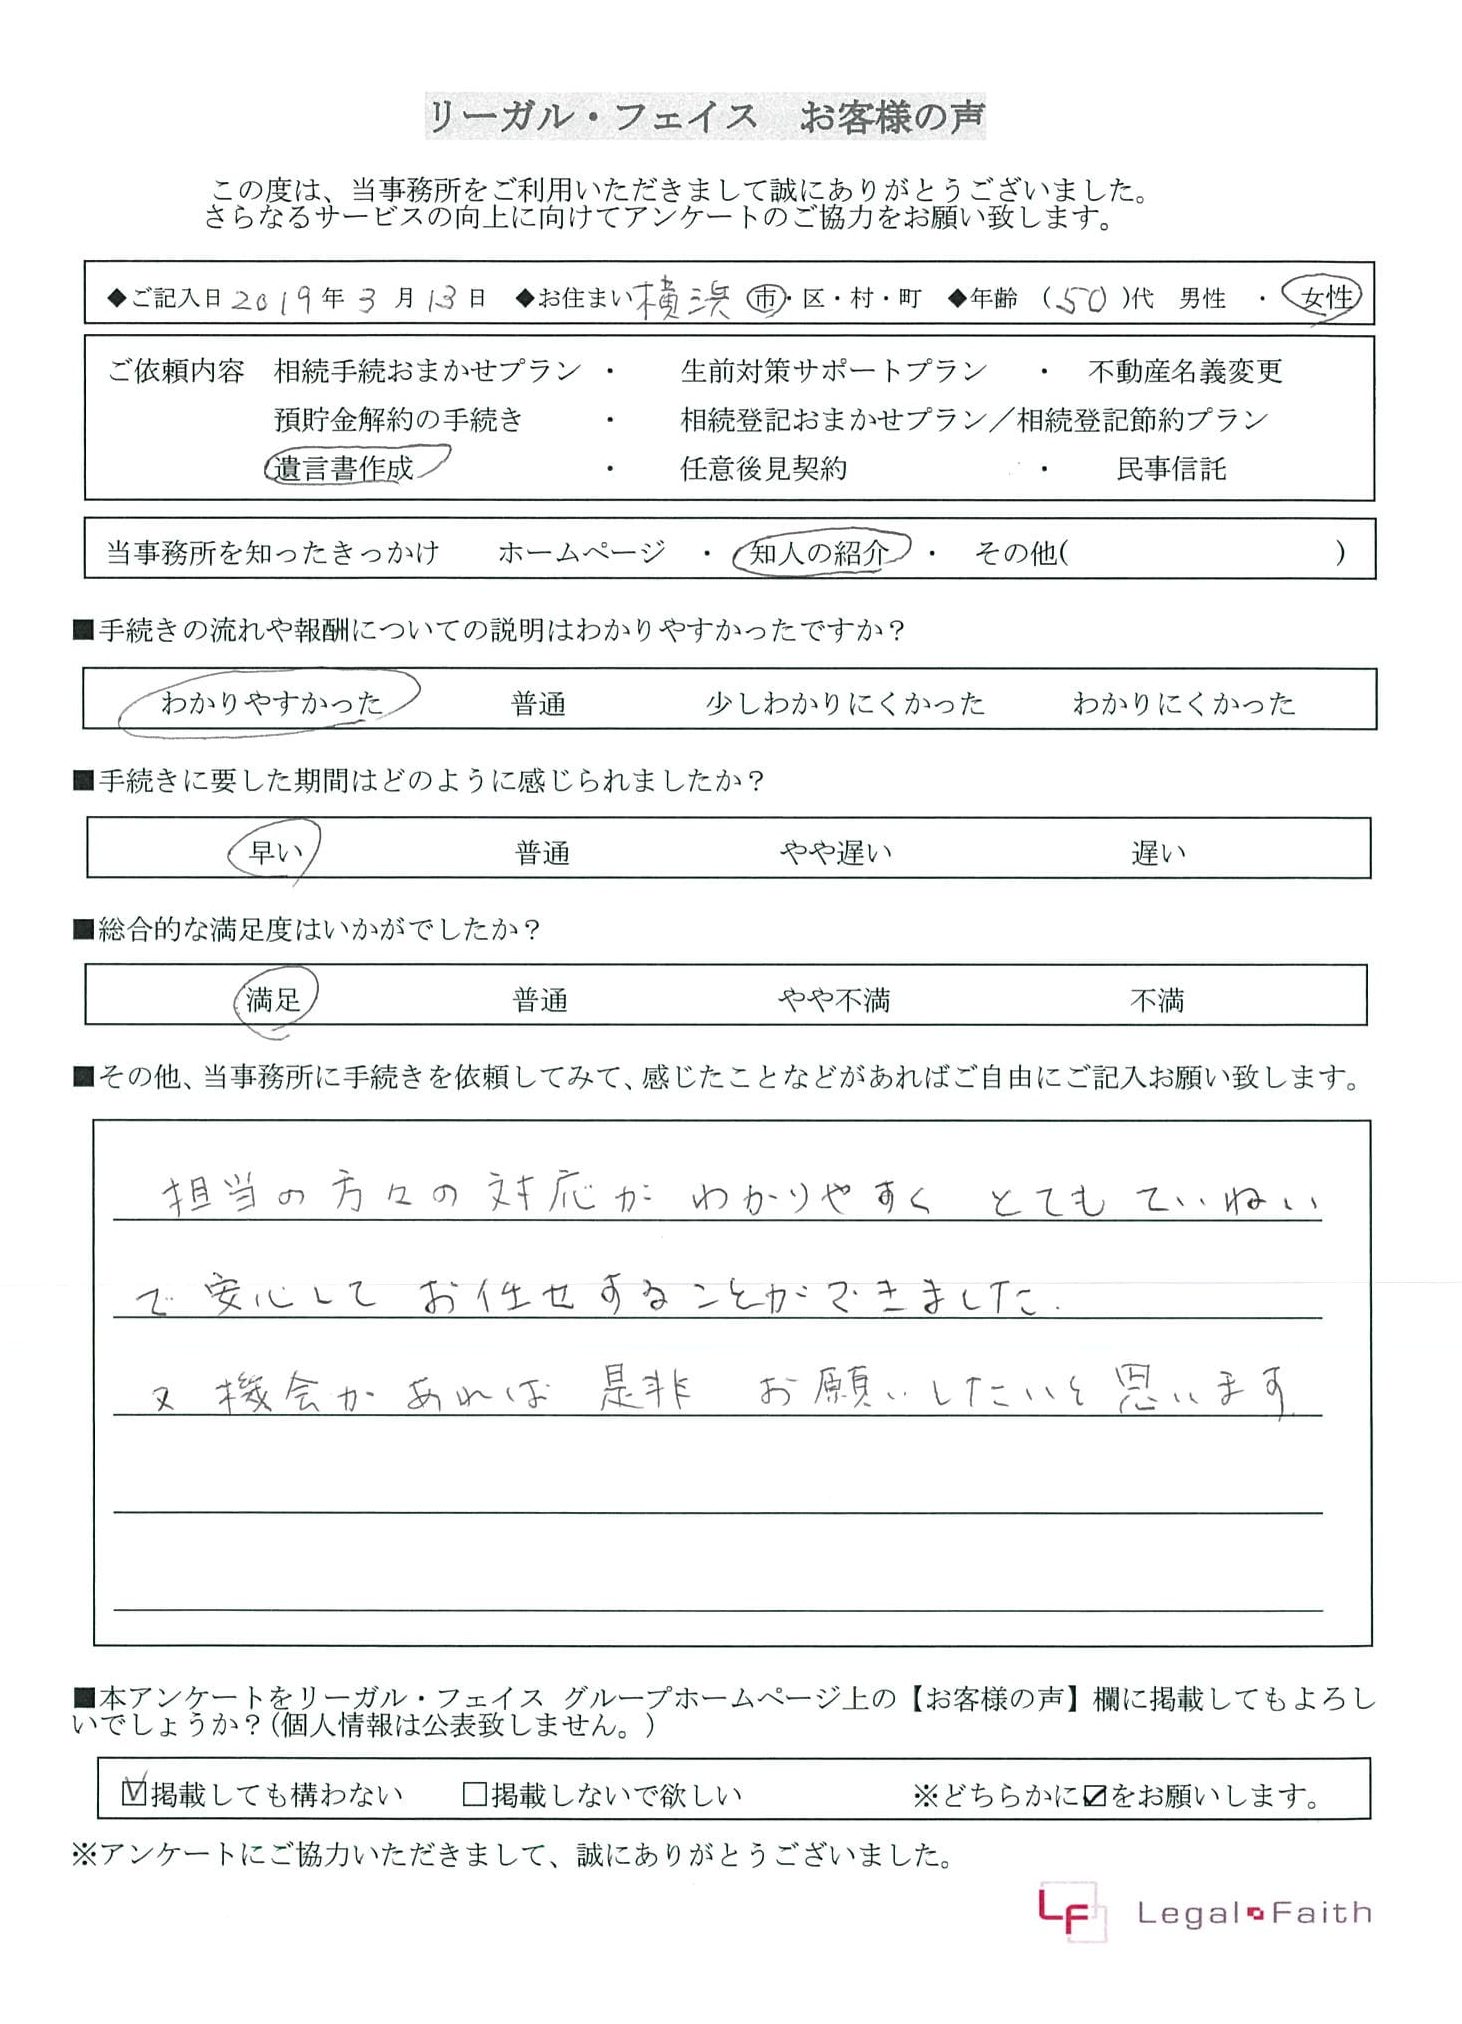 リーガル・フェイス　お客様の声
この度は、当事務所をご利用いただきまして誠にありがとうございました。
さらなるサービスの向上に向けてアンケートのご協力をお願い致します。
◆ご記入日 2019年 3 月 13 日　◆お住まい 横浜 市・区・村・町　◆年齢　(50)代　男性　・　女性
ご依頼内容　相続手続おまかせプラン　・　生前対策サポートプラン　・　不動産名義変更
預貯金解約の手続き　・　相続登記おまかせプラン／相続登記節約プラン
遺言書作成　・　任意後見契約　・　民事信託
当事務所を知ったきっかけ　ホームページ　・　知人の紹介　・　その他(　　　)
■手続きの流れや報酬についての説明はわかりやすかったですか？
わかりやすかった　普通　少しわかりにくかった　わかりにくかった
■手続きに要した期間はどのように感じられましたか？
早い　普通　やや遅い　遅い
■総合的な満足度はいかがでしたか？
満足　普通　やや不満　不満
■その他、当事務所に手続きを依頼してみて、感じたことなどがあればご自由にご記入お願い致します。
担当の方々の対応が わかりやすく とても ていねい
で 安心して お任せすることができました.
又 機会があれば 是非 お願いしたいと思います
■本アンケートをリーガル・フェイス グループホームページ上の【お客様の声】欄に掲載してもよろし
いでしょうか？(個人情報は公表致しません。)
☑掲載しても構わない　□掲載しないで欲しい　※どちらかに☑をお願いします。
※アンケートにご協力いただきまして、誠にありがとうございました。
LF Legal Faith